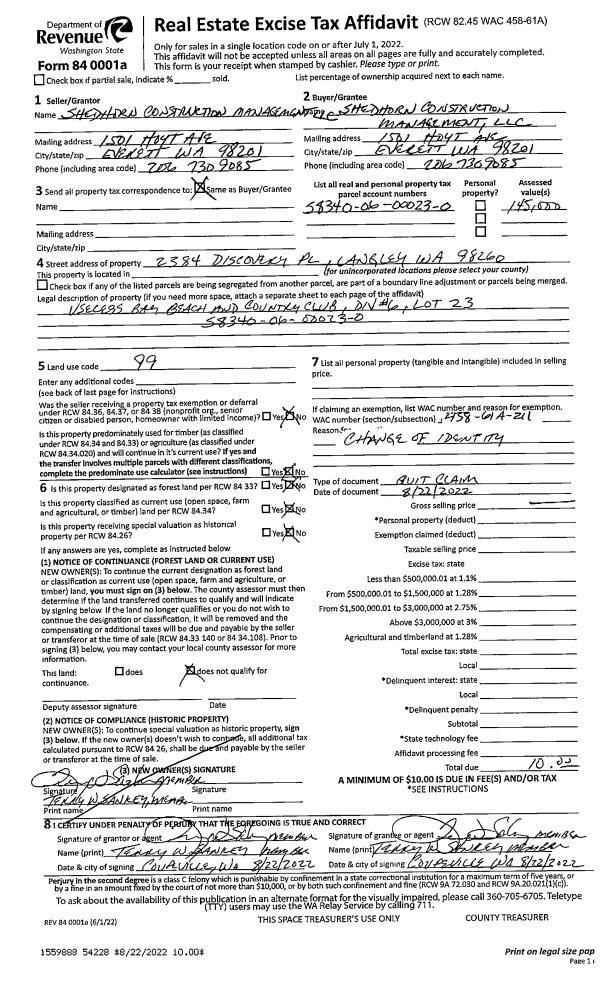 Department of
Revenue
Washington State
Form 84 0001a
Real Estate Excise Tax Affidavit (RCW 82.45 WAC 458-61A)
Only for sales in a single location code on or after July 1, 2022.
This affidavit will not be accepted unless all areas on all pages are fully and accurately completed.
This form is your receipt when stamped by cashier. Please type or print.
Check box if partial sale, indicate % ______ sold.
List percentage of ownership acquired next to each name.
1 Seller/Grantor
Name SHEDHORN CONSTRUCTION MANAGEMENT
Mailing address 1501 HOYT AVE
City/state/zip EVERETT WA 98201
Phone (including area code) 206 730 9085
2 Buyer/Grantee
SHEDHORN CONSTRUCTION
MANAGEMENT, LLC
Mailing address 1501 HOYT AVE
City/state/zip EVERETT WA 98201
Phone (including area code) 206 730 9085
3 Send all property tax correspondence to: Same as Buyer/Grantee
Name
Mailing address
City/state/zip
List all real and personal property tax
parcel account numbers
Personal
property?
Assessed
value(s)
S8340-06-00023-0
145,000
4 Street address of property 2384 DISCOVERY PL, LANGLEY WA 98260
This property is located in (for unincorporated locations please select your county)
Check box if any of the listed parcels are being segregated from another parcel, are part of a boundary line adjustment or parcels being merged.
Legal description of property (if you need more space, attach a separate sheet to each page of the affidavit)
USELESS BAY BEACH AND COUNTRY CLUB, DIV #6, LOT 23
S8340-06-00023-0
5 Land use code 99
Enter any additional codes
(see back of last page for instructions)
Was the seller receiving a property tax exemption or deferral
under RCW 84.36, 84.37, or 84.38 (nonprofit org., senior
citizen or disabled person, homeowner with limited income)? Yes No
Is this property predominately used for timber (as classified
under RCW 84.34 and 84.33) or agriculture (as classified
under RCW 84.34.020) and will continue in it's current use? If yes and
the transfer involves multiple parcels with different classifications,
complete the predominate use calculator (see instructions) Yes No
6 Is this property designated as forest land per RCW 84 33? Yes No
Is this property classified as current use (open space, farm
and agricultural, or timber) land per RCW 84.34? Yes No
Is this property receiving special valuation as historical
property per RCW 84.26? Yes No
If any answers are yes, complete as instructed below
(1) NOTICE OF CONTINUANCE (FOREST LAND OR CURRENT USE)
NEW OWNER(S): To continue the current designation as forest land
or classification as current use (open space, farm and agriculture, or
timber) land, you must sign on (3) below. The county assessor must then
determine if the land transferred continues to qualify and will indicate
by signing below. If the land no longer qualifies or you do not wish to
continue the designation or classification, it will be removed and the
compensating or additional taxes will be due and payable by the seller
or transferor at the time of sale (RCW 84.33 140 or 84 34.108). Prior to
signing (3) below, you may contact your local county assessor for more
information.
This land: does does not qualify for
continuance.
Deputy assessor signature Date
(2) NOTICE OF COMPLIANCE (HISTORIC PROPERTY)
NEW OWNER(S): To continue special valuation as historic property, sign
(3) below. If the new owner(s) doesn't wish to continue, all additional tax
calculated pursuant to RCW 84 26, shall be due and payable by the seller
or transferor at the time of sale.
(3) NEW OWNER(S) SIGNATURE
Signature Signature
TERRY W. SANKEY,
Print name Print name
7 List all personal property (tangible and intangible) included in selling
price.
If claiming an exemption, list WAC number and reason for exemption.
WAC number (section/subsection) 458-61A-211
Reason for
CHANGE OF IDENTITY
Type of document QUIT CLAIM
Date of document 8/22/2022
Gross selling price
*Personal property (deduct)
Exemption claimed (deduct)
Taxable selling price
Excise tax: state
Less than $500,000.01 at 1.1%
From $500,000.01 to $1,500,000 at 1.28%
From $1,500,000.01 to $3,000,000 at 2.75%
Above $3,000,000 at 3%
Agricultural and timberland at 1.28%
Total excise tax: state
Local
*Delinquent interest: state
Local
*Delinquent penalty
Subtotal
*State technology fee
Affidavit processing fee
Total due 10.00
A MINIMUM OF $10.00 IS DUE IN FEE(S) AND/OR TAX
*SEE INSTRUCTIONS
8 I CERTIFY UNDER PENALTY OF PERJURY THAT THE FOREGOING IS TRUE AND CORRECT
Signature of grantor or agent MEMBER
Name (print) TERRY W SANKEY MEMBER
Date & city of signing COUPEVILLE WA 8/22/2022
Signature of grantee or agent MEMBER
Name (print) TERRY W SANKEY MEMBER
Date & city of signing COUPEVILLE WA 8/22/2022
Perjury in the second degree is a class C felony which is punishable by confinement in a state correctional institution for a maximum term of five years, or
by a fine in an amount fixed by the court of not more than $10,000, or by both such confinement and fine (RCW 9A.72.030 and RCW 9A.20.021(1)(c)).
To ask about the availability of this publication in an alternate format for the visually impaired, please call 360-705-6705. Teletype
(TTY) users may use the WA Relay Service by calling 711.
REV 84 0001a (6/1/22)
THIS SPACE TREASURER'S USE ONLY
COUNTY TREASURER
1559888 54228 *8/22/2022 10.00*
Print on legal size pap
Page 1